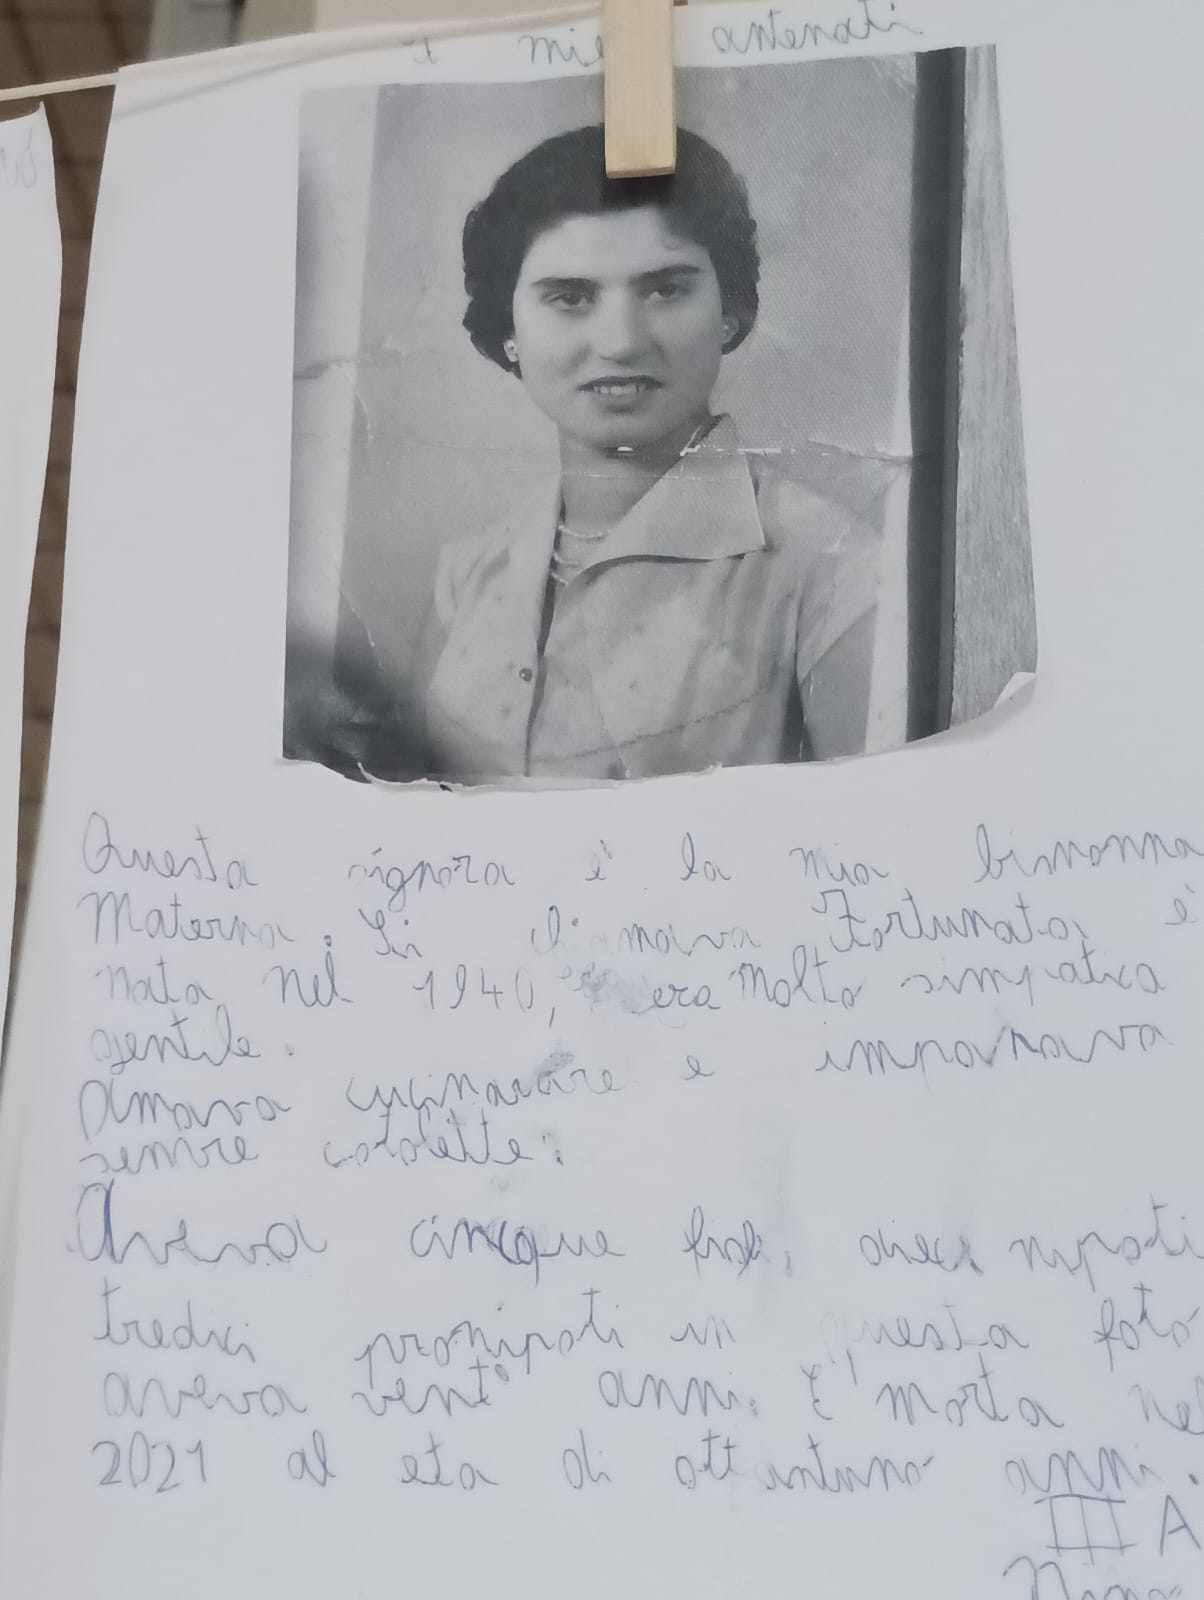 I miei antenati
Questa signora è la mia bisnonna
Materna. Si chiamava Fortunata, è
nata nel 1940, era molto simpatica
gentile.
Amava cucinarare e impanava
sempre cotolette.
Aveva cinque figli, dieci nipoti
tredici pronipoti in questa foto
aveva vent' anni. E' morta nel
2021 al eta di ottantuno anni.
III A